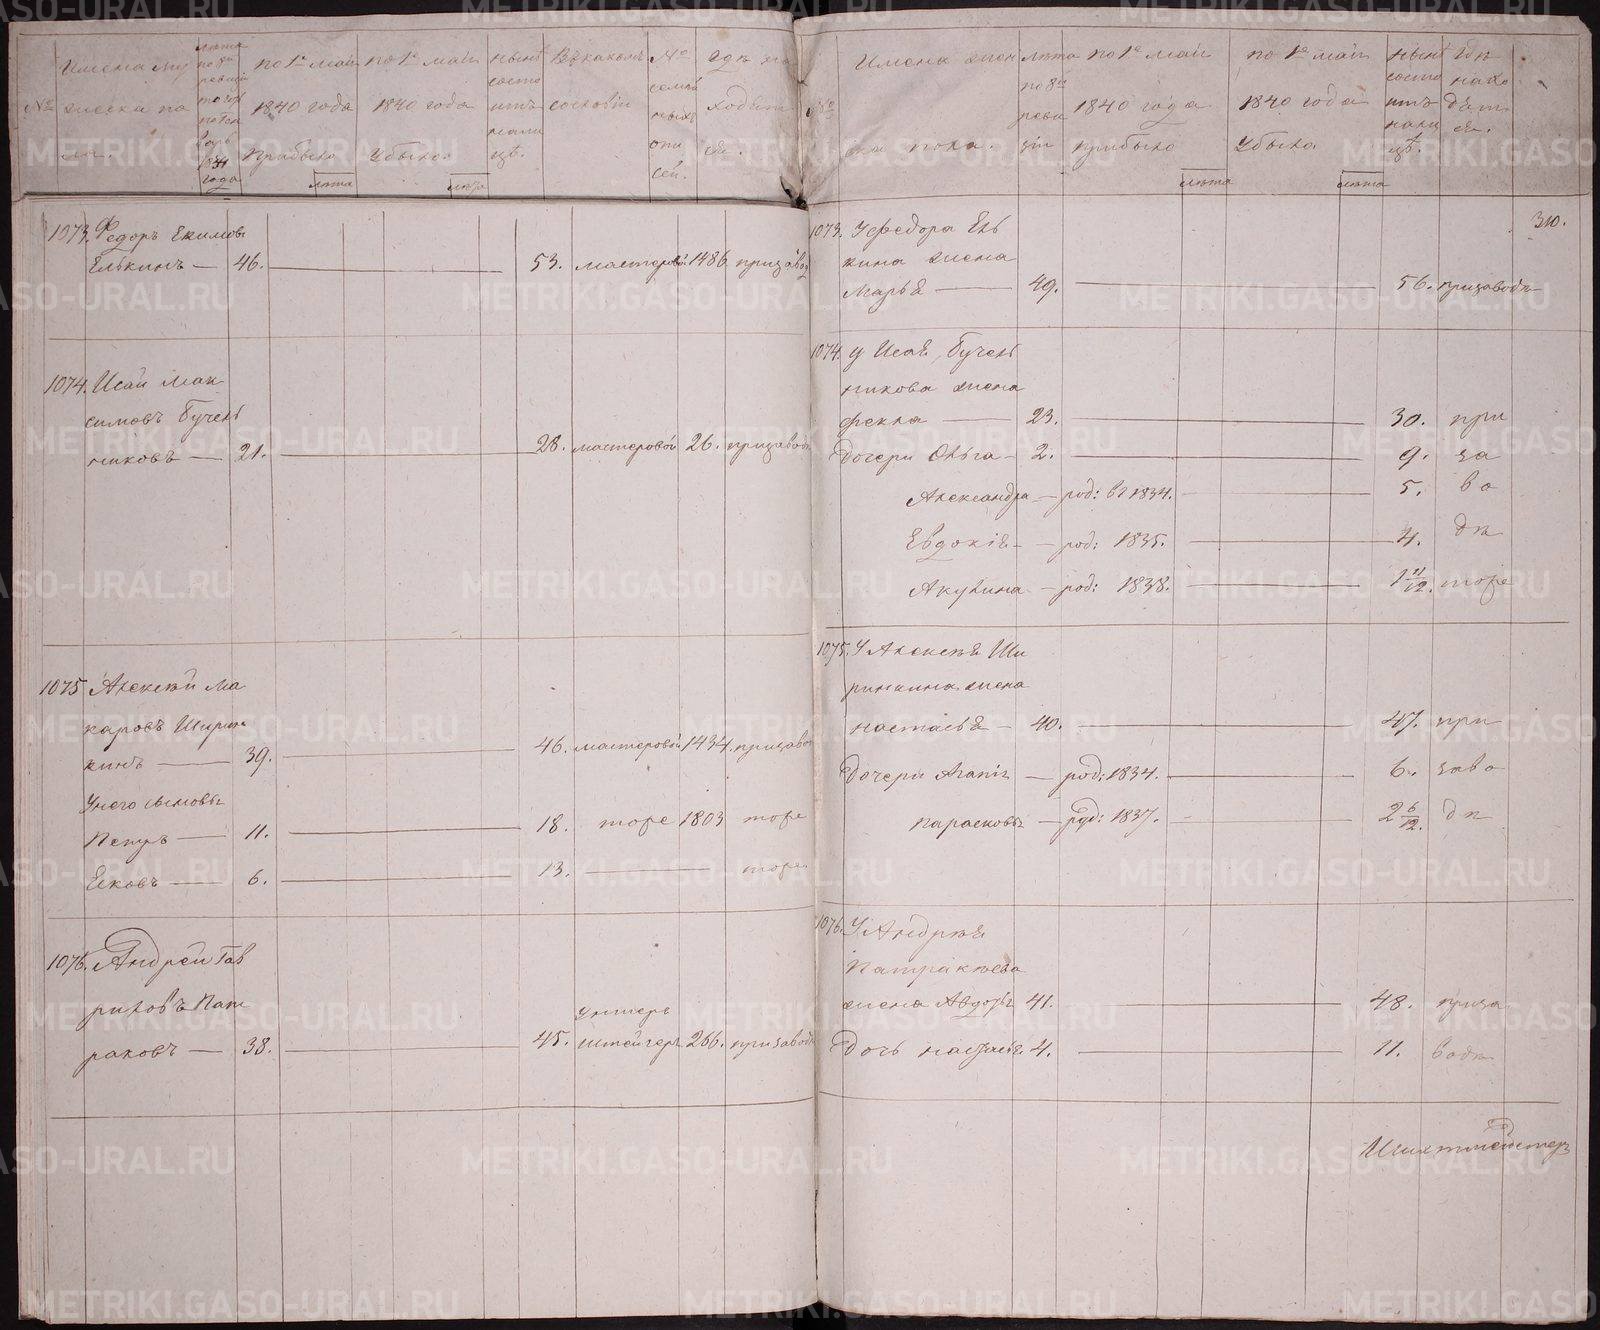 №
Имена му
жеска по
ла.
лѣта
по 8й
ревизіи
1834
года
по 1е маія
1840 года
прибыло
лѣта
по 1е маія
1840 года
убыло.
лѣта
нынѣ
состо
итъ
нали
цѣ.
Въ какомъ
сословіи
№
семей
ныхъ
опи
сей.
Гдѣ на
ходит
ся.
1073. Федоръ Екимовъ
Елькинъ — 46. 53. мастеровой 1486 при завод
1074. Исай Мак
симовъ Бучель
никовъ — 21. 28. мастеровой 26. при завод
1075 Алексѣй Ма
каровъ Ширин
кинъ — 39. 46. мастеровой 1434. при завод
У него сыновья
Петръ — 11. 18. тоже 1803 тоже
Яковъ — 6. 13. тоже
1076. Андрей Гав
риловъ Пат
раковъ — 38. 45. унтеръ
штейгеръ 266. при заводѣ
№
Имена жен
ска пола.
лѣта
по 8й
реви
зіи
по 1е маія
1840 года
прибыло
лѣта
по 1е маія
1840 года
убыло
лѣта
нынѣ
состо
итъ
нали
цѣ.
Гдѣ
нахо
дит
ся.
310.
1073. У Федора Ель
кина жена
Марья — 49. 56. при заводѣ
1074. У Исая Бучель
никова жена
Фекла — 23. 30. при
Дочери Ольга — 2. 9. за
Александра — род: въ 1834. 5. во
Евдокія — род: 1835. 4. дѣ
Акулина — род: 1838. 1 11/12. тоже
1075. У Алексѣя Ши
ринкина жена
Настасья — 40. 47. при
Дочери Агапія — род: 1834. 6. заво
Парасковья — род: 1837. 2 6/12. дѣ
1076. У Андрея
Патракѣева
жена Авдотья 41. 48. при за
Дочь Настасья 4. 11. водѣ
Шихтмейстеръ
METRIKI.GASO-URAL.RU